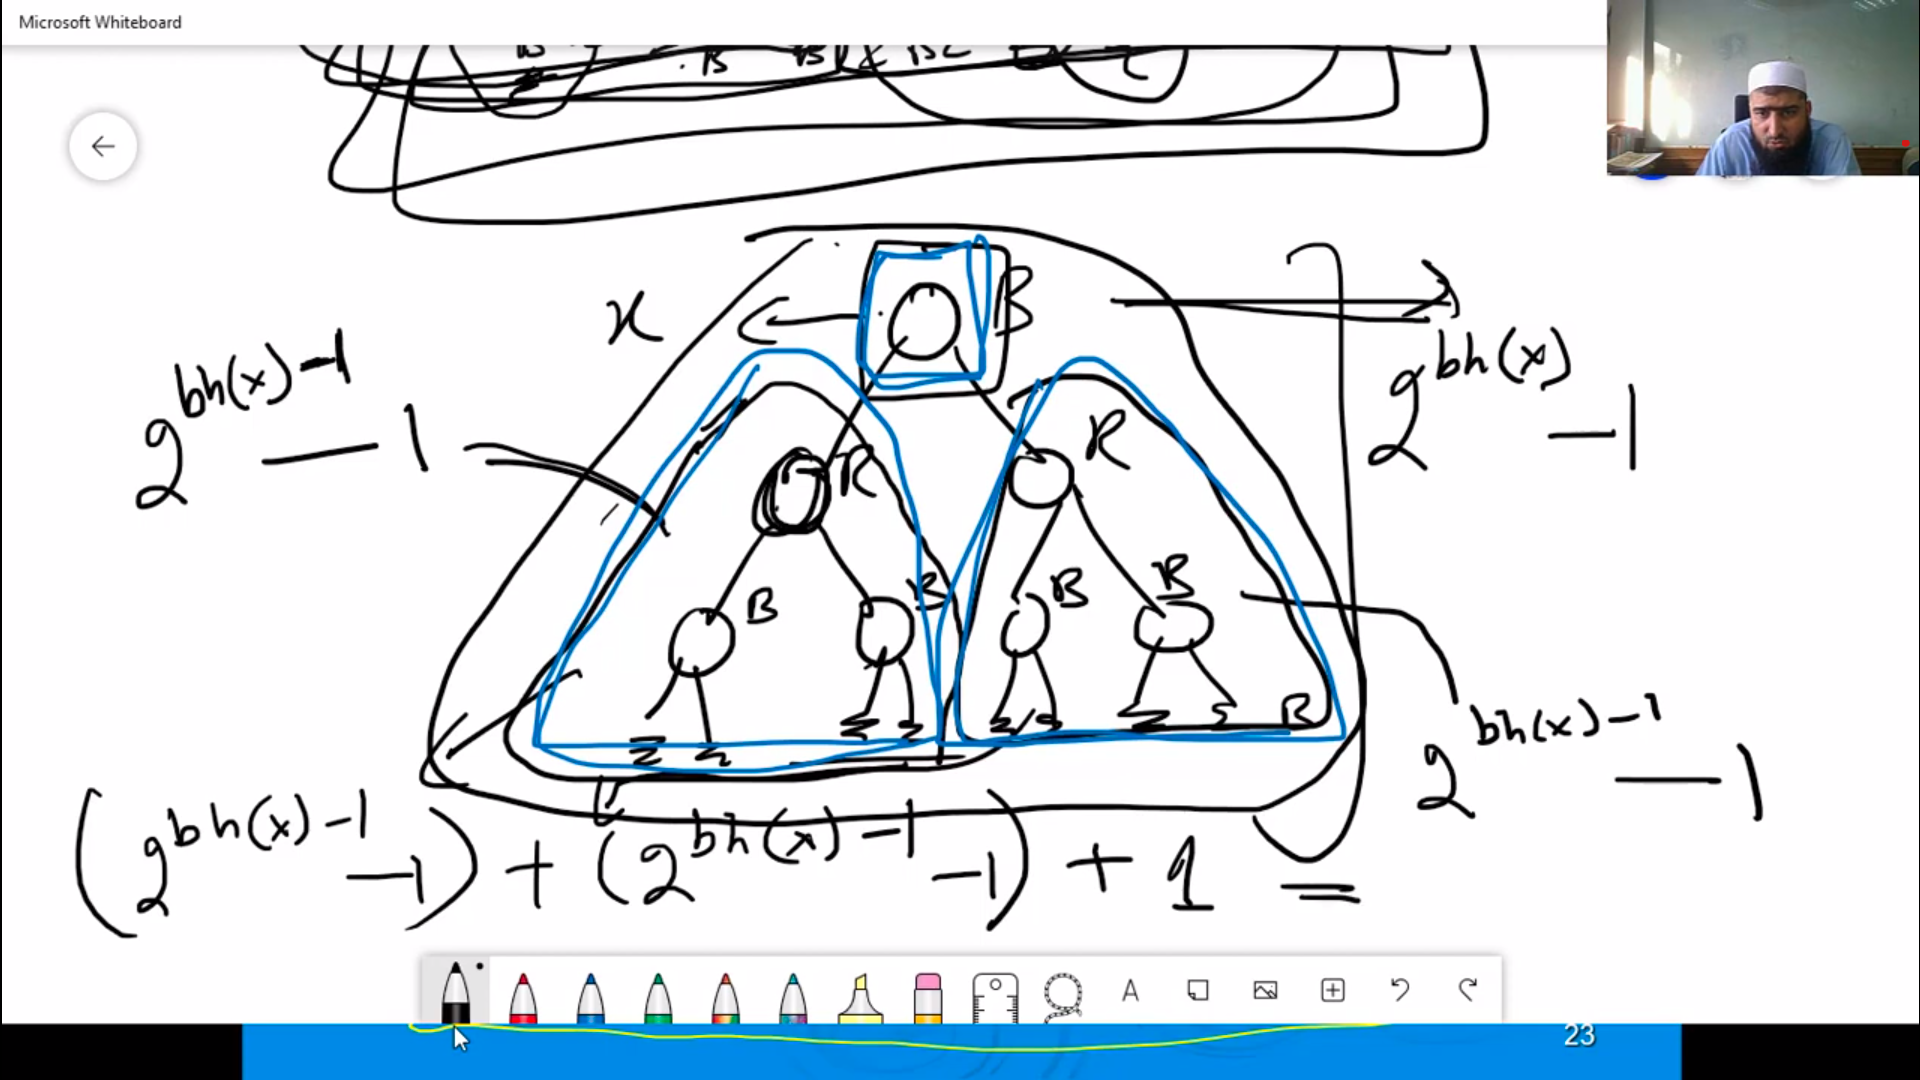 Microsoft Whiteboard
B B BL
x B
2^{bh(x)-1} - 1
2^{bh(x)} - 1
R R
B B B B
B
2^{bh(x)-1} - 1
(2^{bh(x)-1} - 1) + (2^{bh(x)-1} - 1) + 1 =
A
23